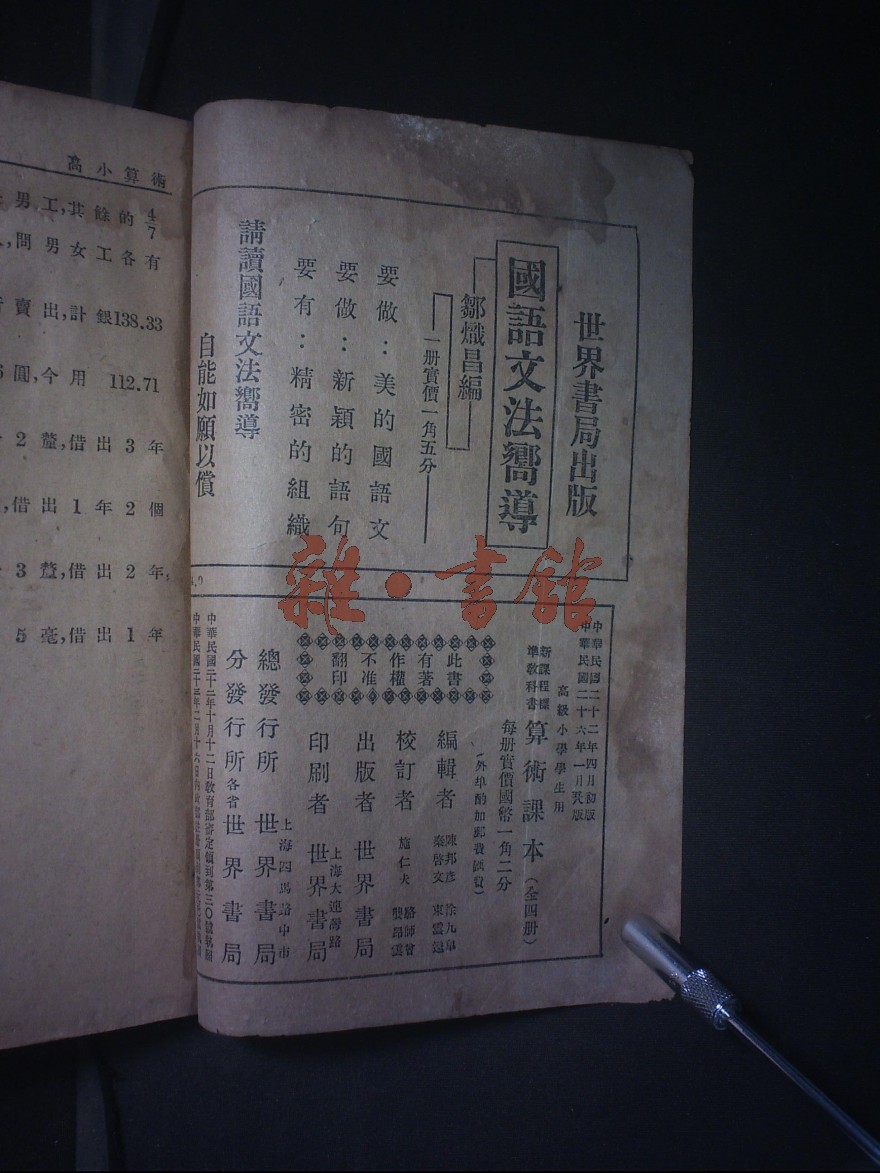 高小算術
男工,其餘的 4/7
問男女工各有
賣出,計銀138.33
圓,今用 112.71
2 釐,借出 3 年
借出 1 年 2 個
3 釐,借出 2 年,
5 毫,借出 1 年
世界書局出版
國語文法嚮導
鄒熾昌編
一册實價一角五分
要做:美的國語文
要做:新穎的語句
要有:精密的組織
請讀國語文法嚮導
自能如願以償
中華民國二十二年四月初版
中華民國二十六年一月 版
高級小學學生用
新課程標準教科書
算術課本(全四册)
每册實價國幣一角二分
(外埠酌加郵費匯費)
此書有著作權不准翻印
編輯者 陳邦彥
校訂者 施仁夫 駱師曾
出版者 世界書局
印刷者 上海大連灣路 世界書局
總發行所 上海四馬路中市 世界書局
分發行所 各省 世界書局
中華民國二十二年十月十二日教育部審定領到第三〇號執照
雜·書館